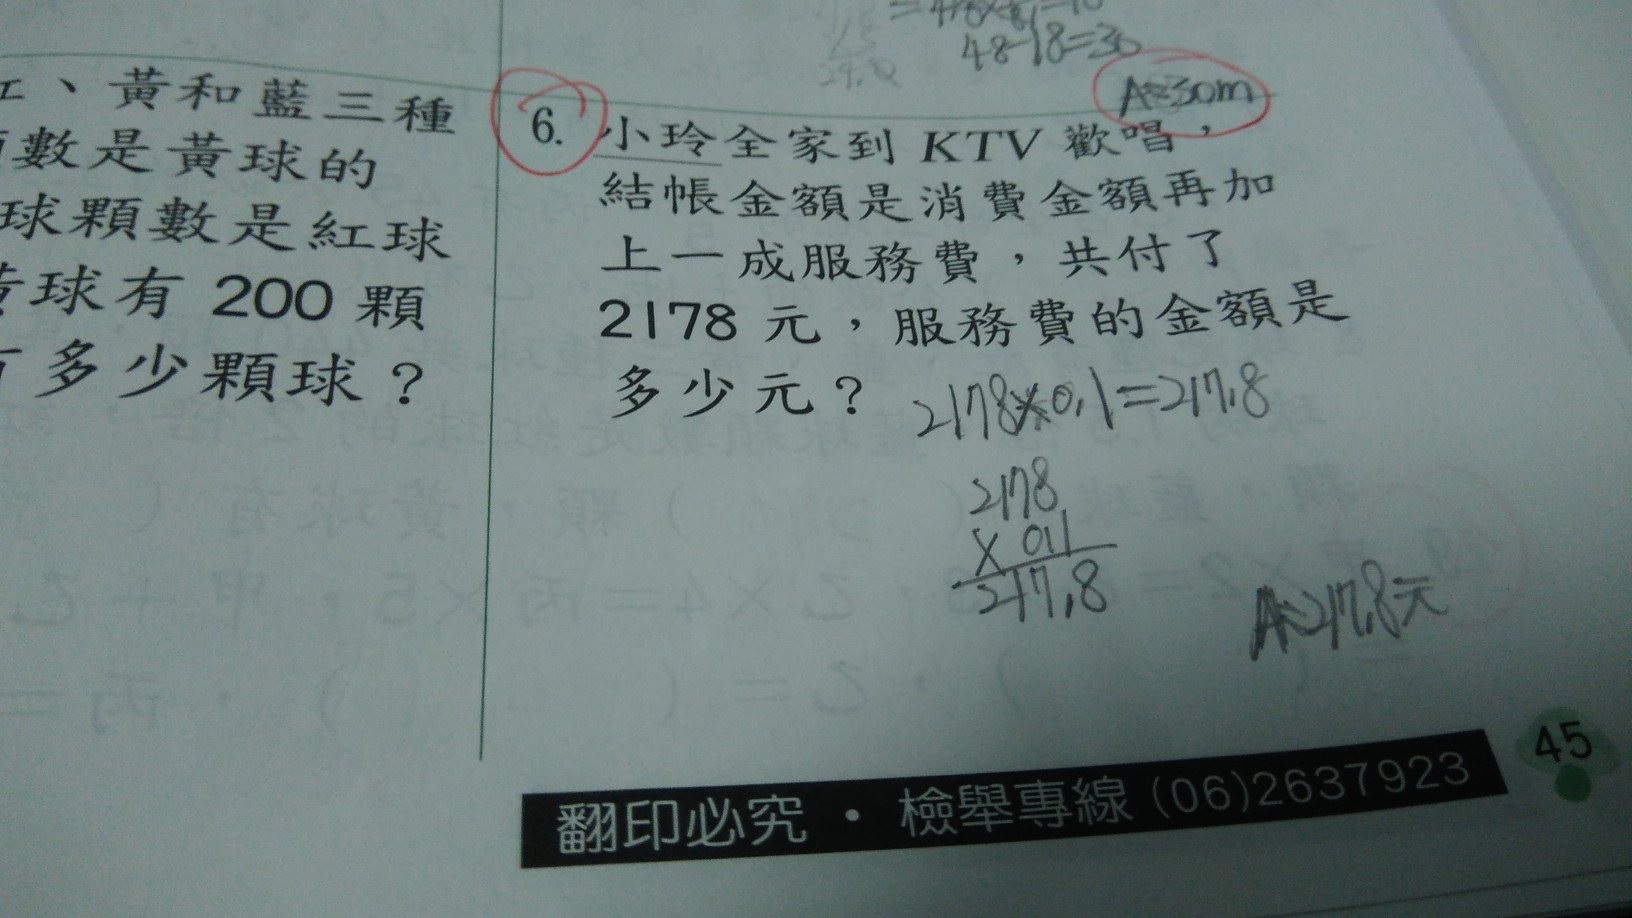 、黃和藍三種
數是黃球的
球顆數是紅球
球有 200 顆
多少顆球？
48-18=30
A=30m
6.
小玲全家到 KTV 歡唱，
結帳金額是消費金額再加
上一成服務費，共付了
2178 元，服務費的金額是
多少元？
2178×0.1=217.8
2178
× 0.1
217.8
A=217.8元
翻印必究・檢舉專線 (06)2637923
45